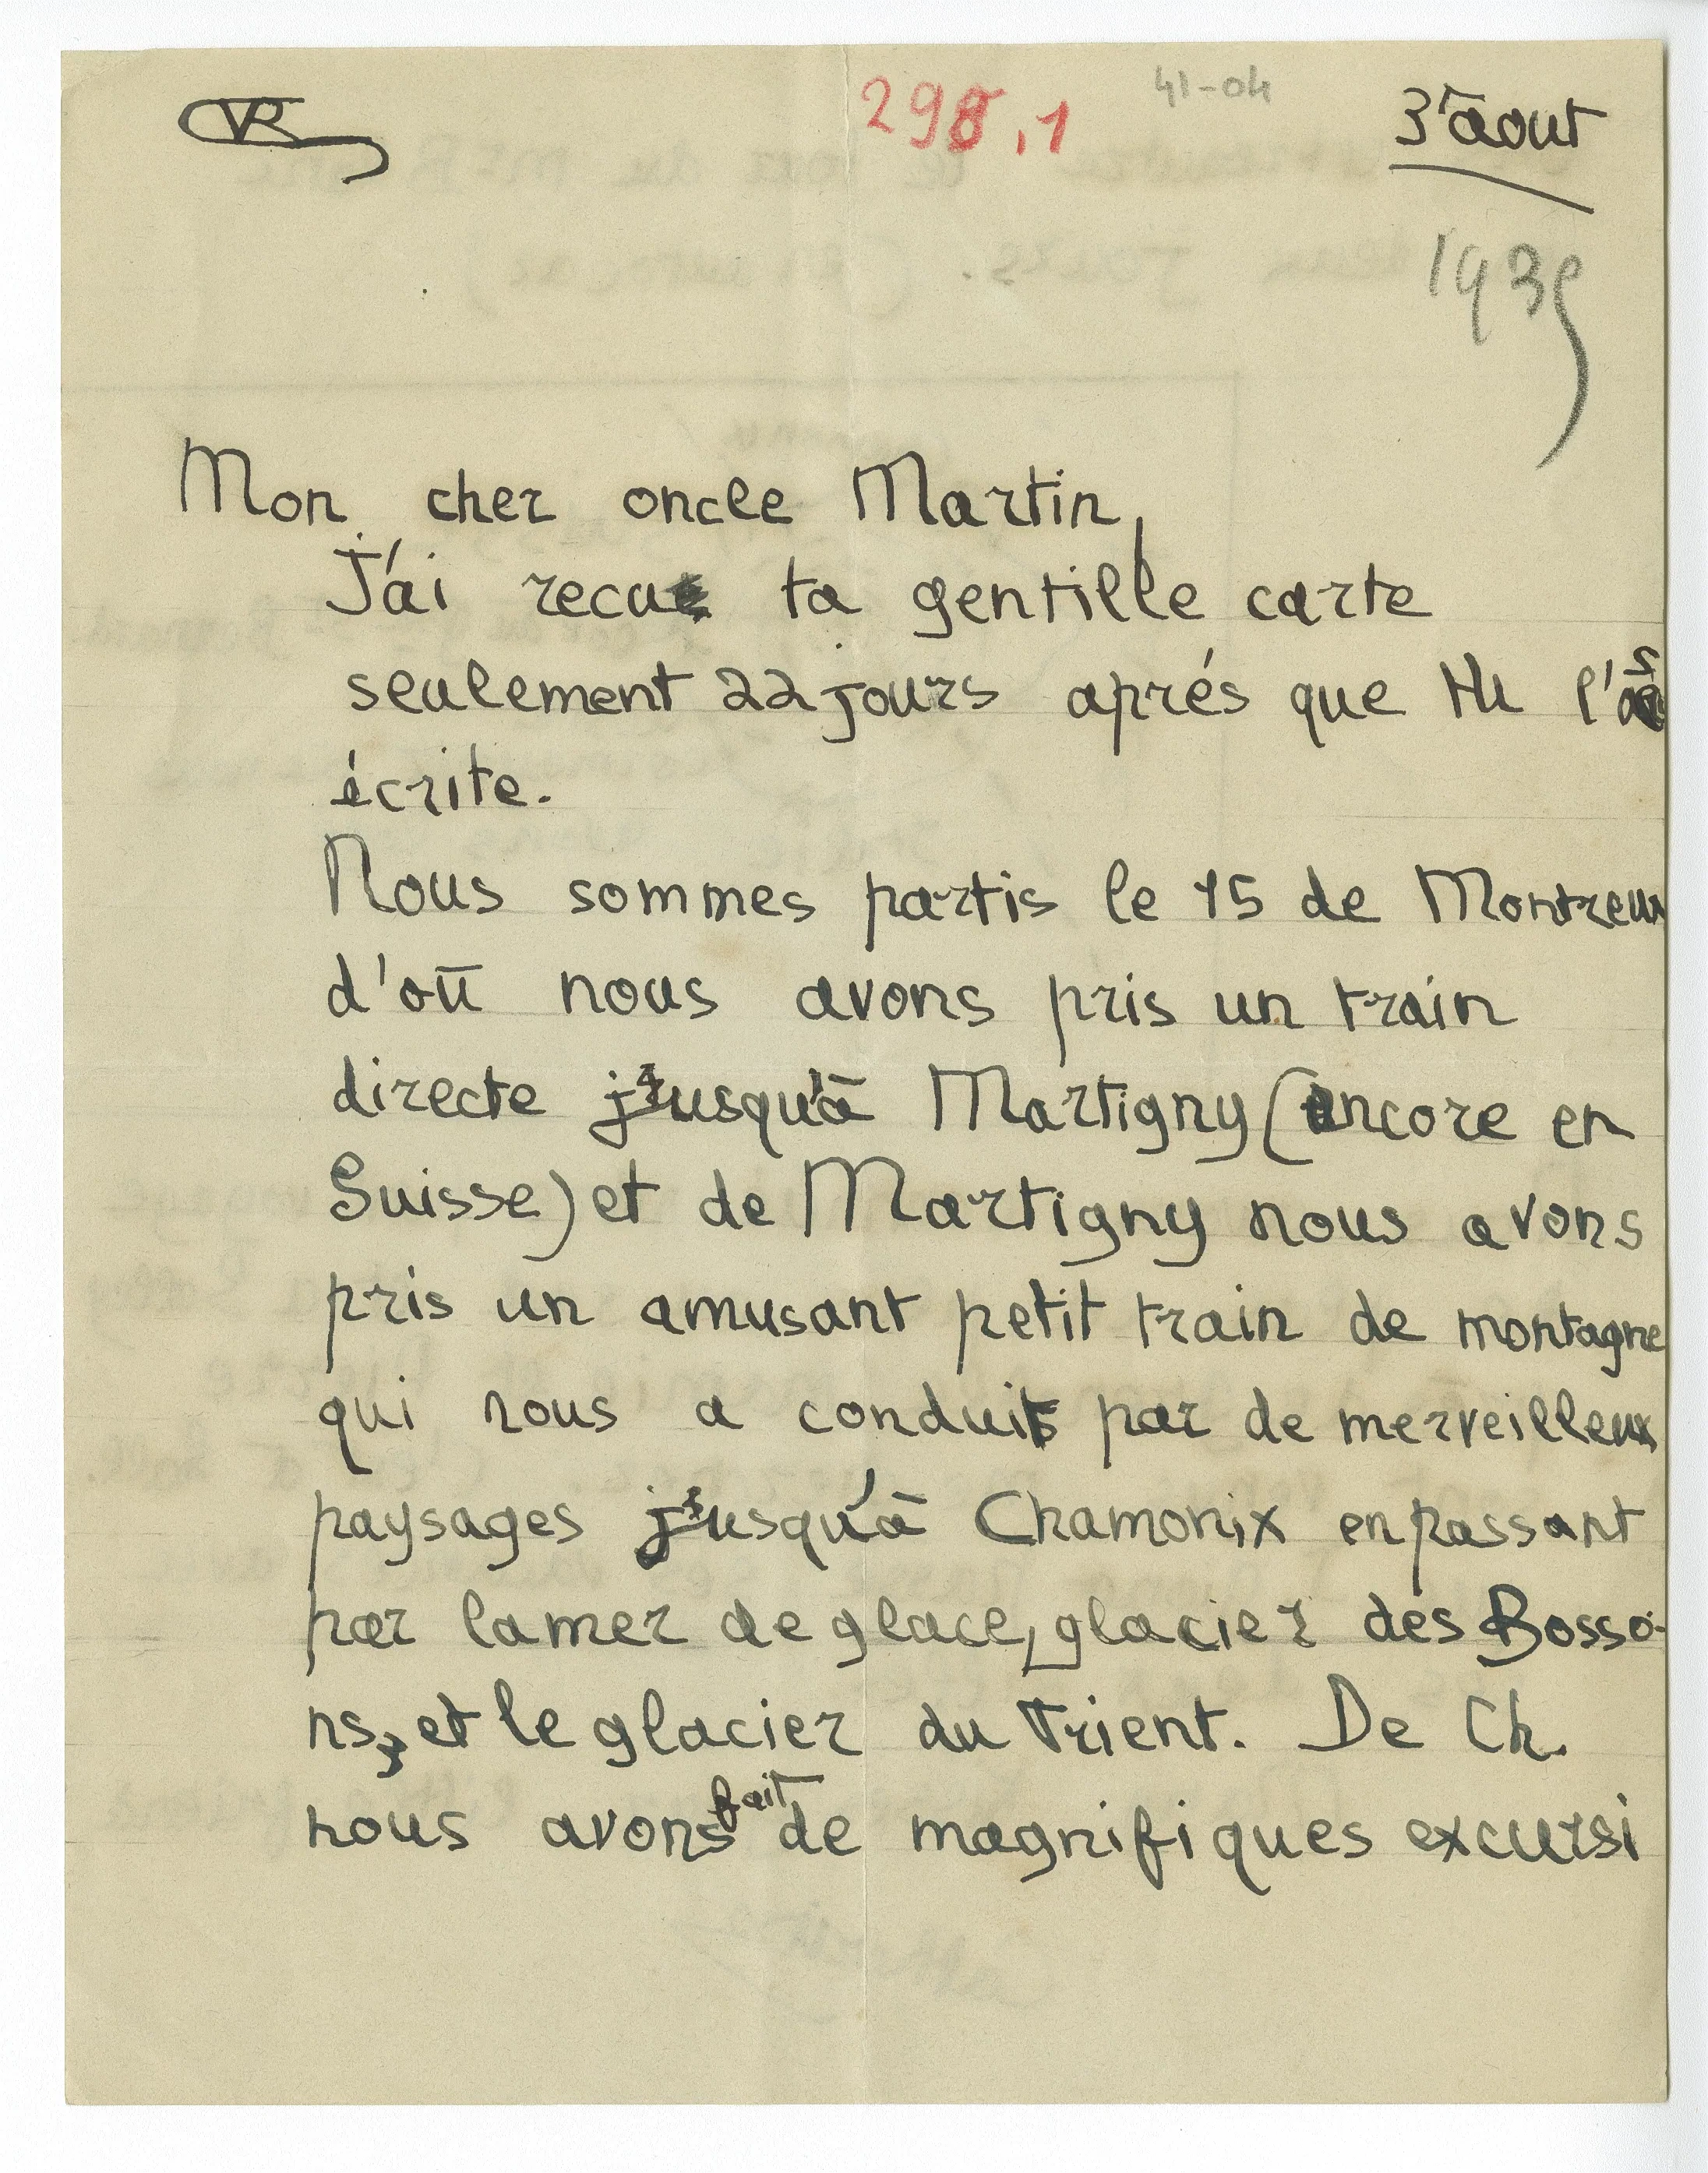 VR
298,1
41-04
3 aout
1939
Mon cher oncle Martin,
J'ai recu ta gentille carte
seulement 22 jours aprés que tu l'as
écrite.
Nous sommes partis le 15 de Montreux
d'où nous avons pris un train
directe jusqu'à Martigny (encore en
Suisse) et de Martigny nous avons
pris un amusant petit train de montagne
qui nous a conduit par de merveilleux
paysages jusqu'à Chamonix en passant
par la mer de glace, glacier des Bosso-
ns, et le glacier du Trient. De Ch.
nous avons fait de magnifiques excursi